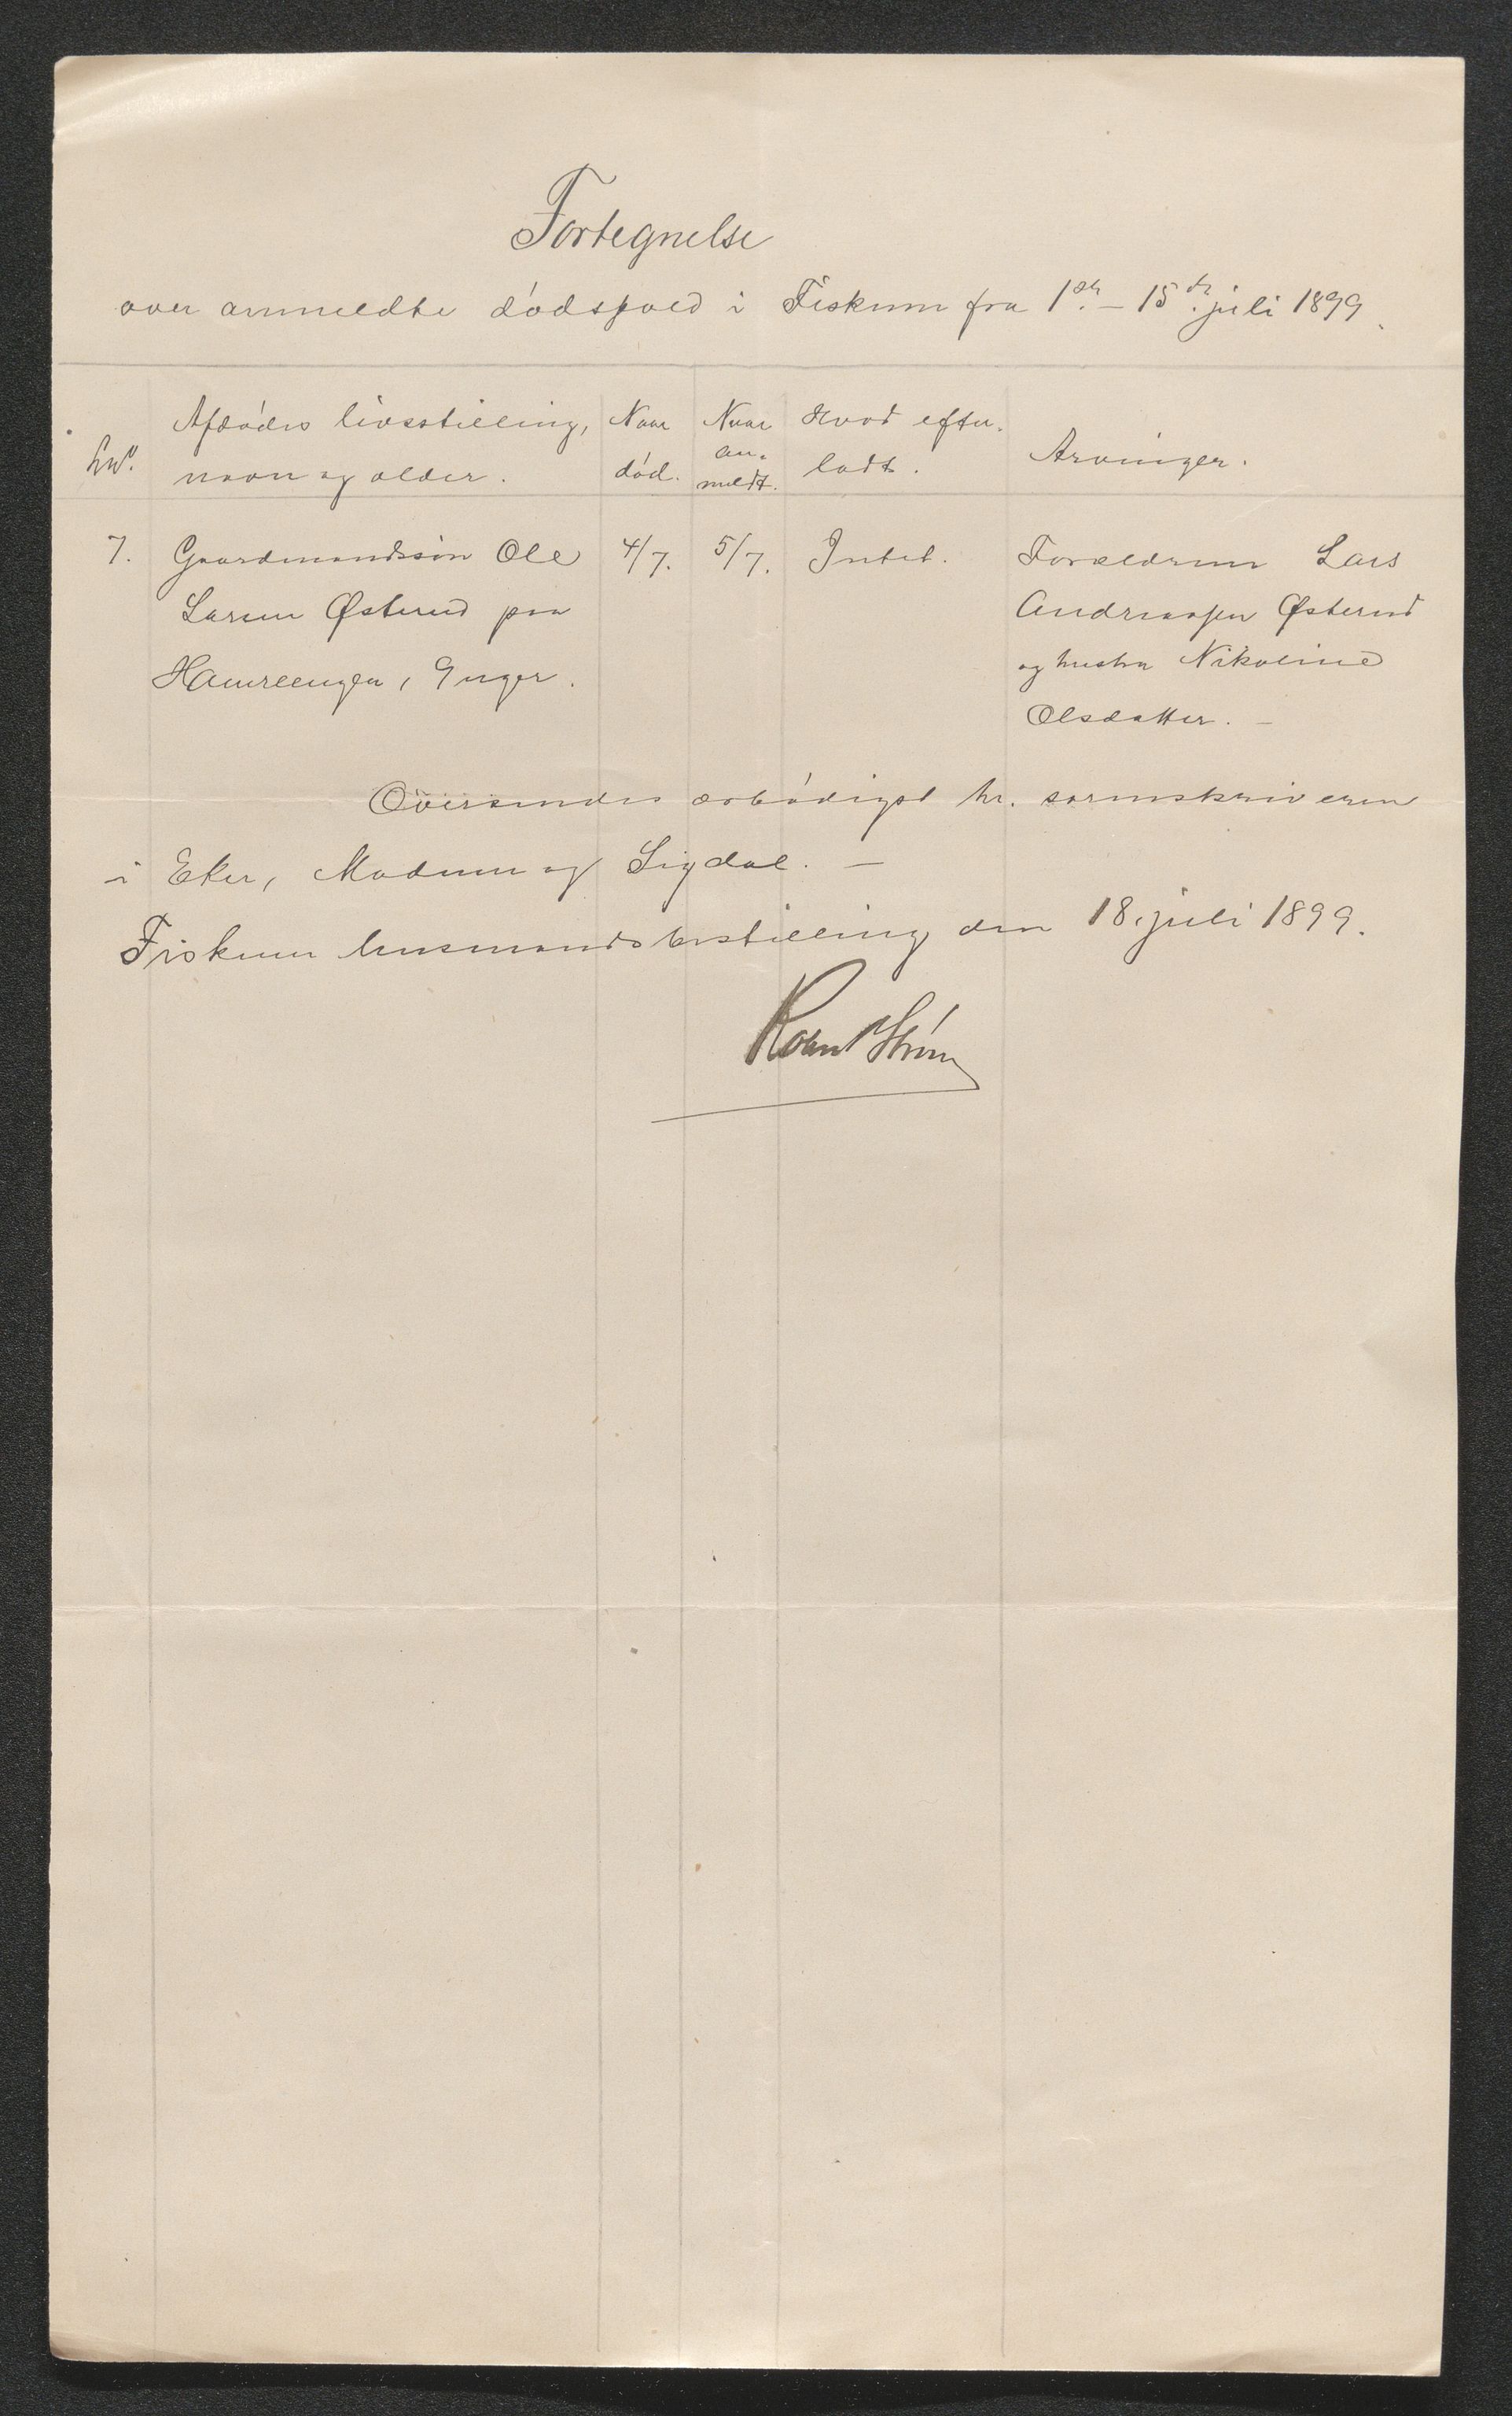 Fortegnelse
over anmeldte dødsfald i Fiskum fra 1ste. – 15de. juli 1899.
Lnr. Afdødes livsstilling, navn og alder. Naar død. Naar an- meldt. Hvad efter- ladt. Arvinger.
7. Gaardmandssøn Ole 4/7. 5/7. Intet. Forældrene Lars
Larsen Østerud paa Andreassen Østerud
Hamreengen, 9 uger. og hustru Nikoline
Olsdatter. –
Oversendes ærbødigst hr. sorenskriveren
i Eker, Modum og Sigdal. –
Fiskum lensmandsbestilling den 18. juli 1899.
Strøm